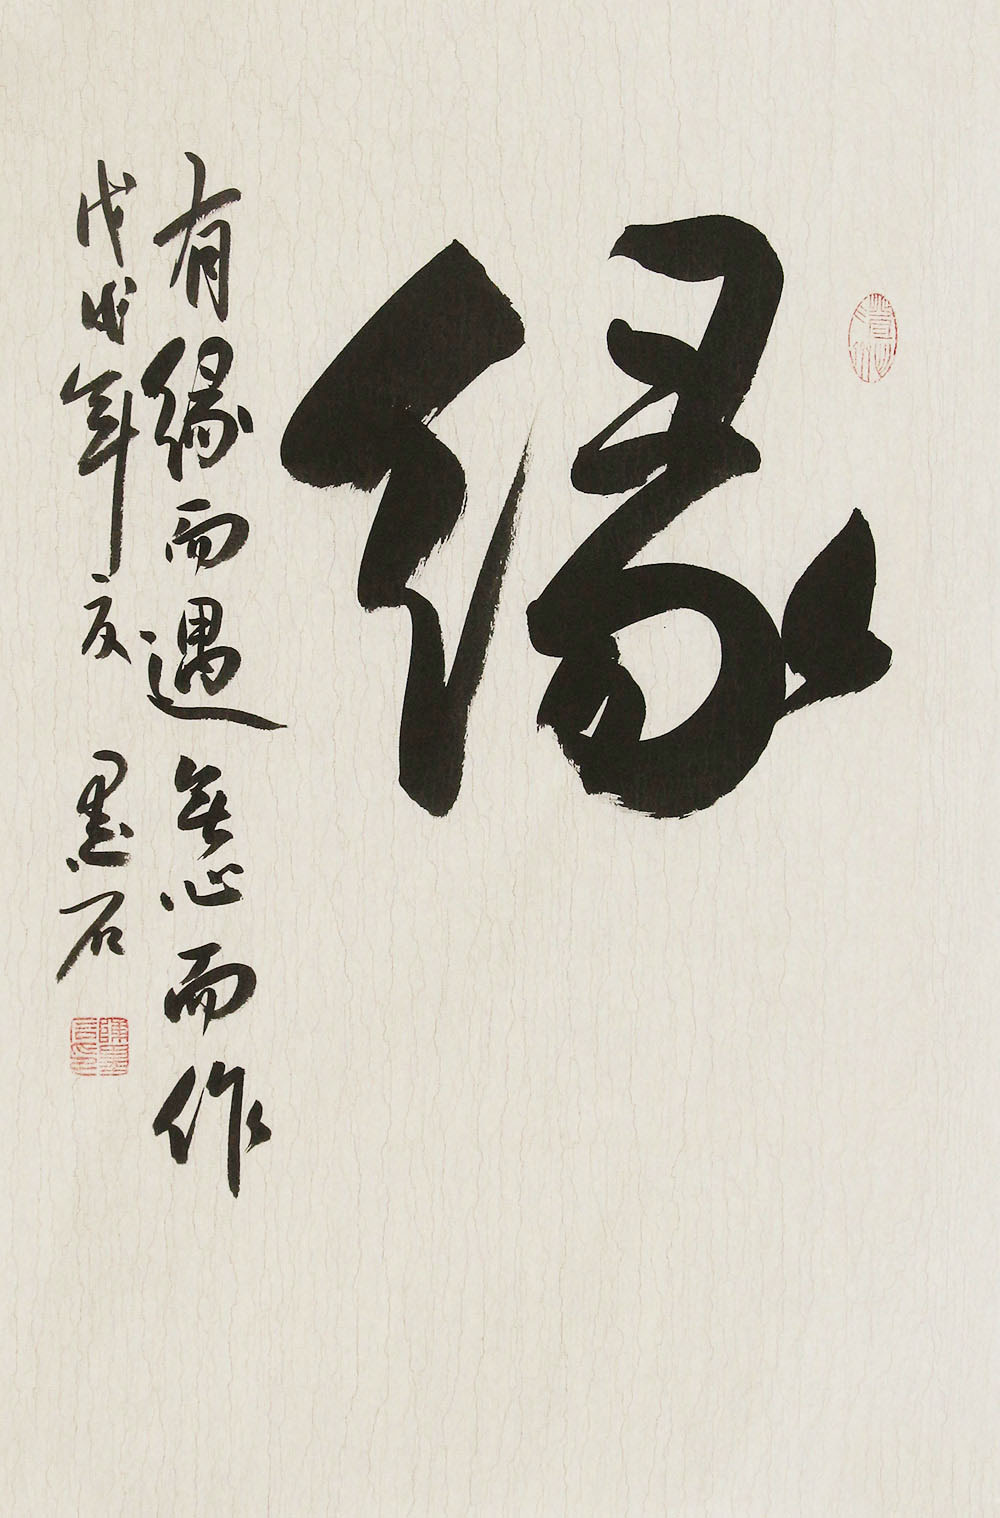 缘
有缘而遇无心而作
戊戌年夏 墨石